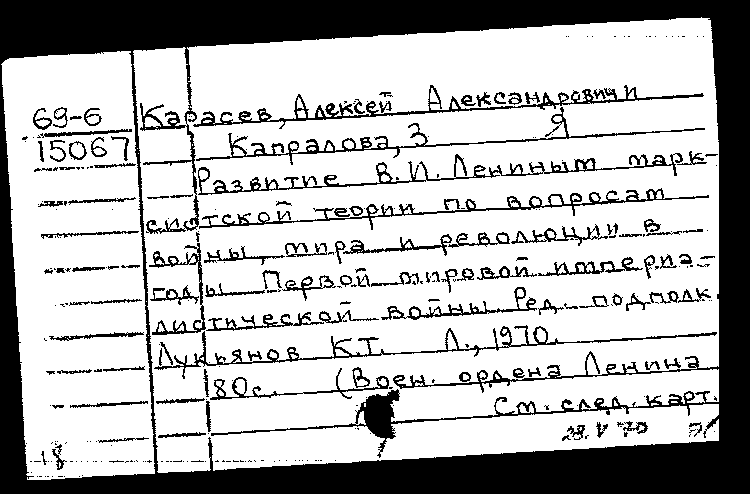 69-6 Карасев, Алексей Александрович и
15067 Капралова, З Я
Развитие В.И. Лениным марк-
систской теории по вопросам
войны, мира и революции в
годы Первой мировой империа-
листической войны Ред. подполк.
Лукьянов К.Т. Л., 1970.
80с. (Воен. ордена Ленина
См. след. карт.
28.V 70
18